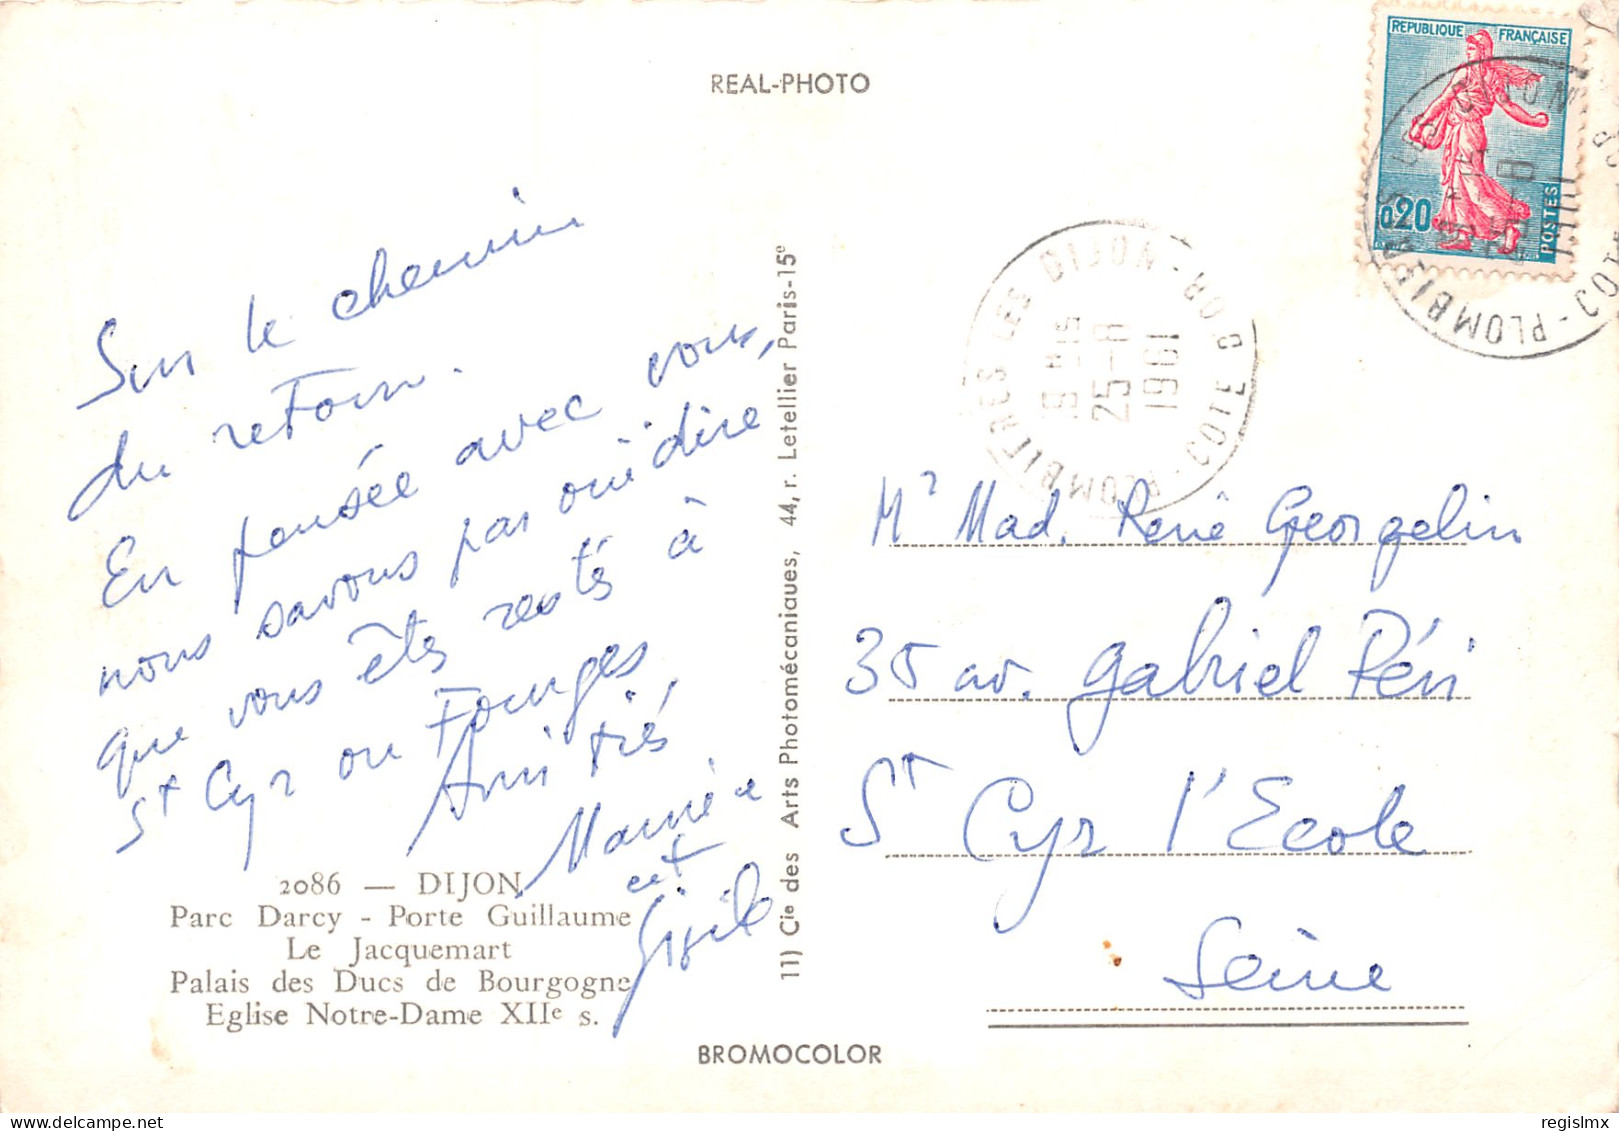 REAL-PHOTO
Sur le chemin
du retour.
En pensée avec vous,
nous savons pas ouï dire
que vous êtes restés à
St Cyr ou Fourges.
Amitiés
et
2086 — DIJON
Parc Darcy - Porte Guillaume
Le Jacquemart
Palais des Ducs de Bourgogne
Eglise Notre-Dame XIIe s.
11) Cie des Arts Photomécaniques, 44, r. Letellier Paris-15e
BROMOCOLOR
REPUBLIQUE FRANÇAISE
0,20
POSTES
PLOMBIÈRES LES DIJON - COTE D'OR
19H-15
25-8
1961
Mr Mad. René Georgelin
35 av. Gabriel Péri
St Cyr l'Ecole
Seine
regislmx